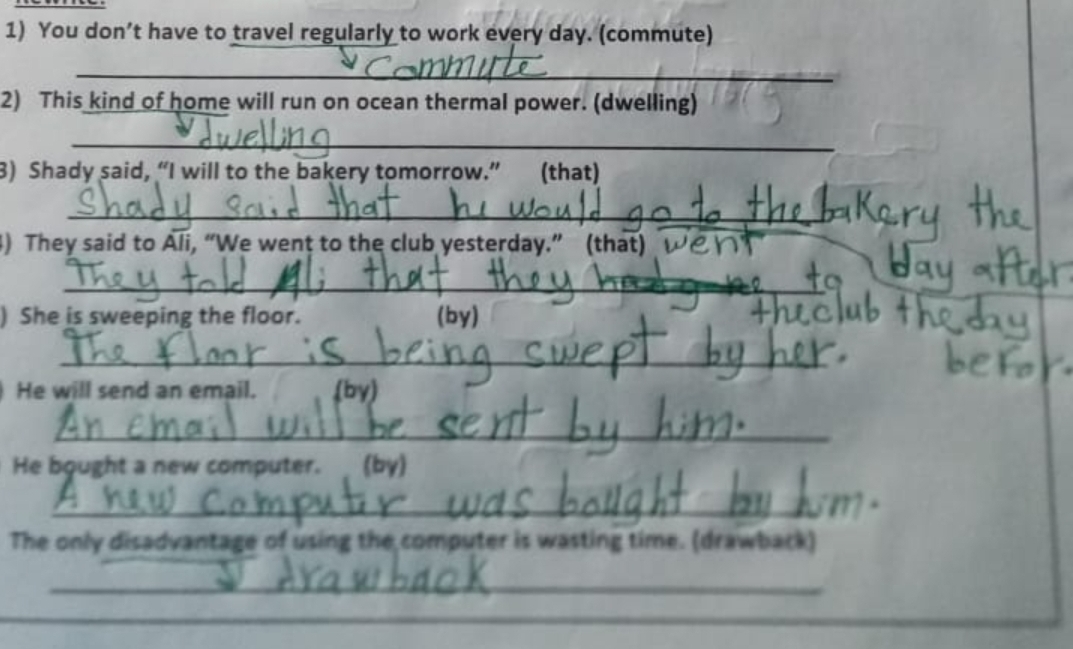 Rewrite:
1) You don't have to travel regularly to work every day. (commute)
Commute
2) This kind of home will run on ocean thermal power. (dwelling)
dwelling
3) Shady said, “I will to the bakery tomorrow.” (that)
Shady said that he would go to the bakery the
day after.
) They said to Ali, “We went to the club yesterday.” (that)
went
They told Ali that they to
the club the day
befor.
) She is sweeping the floor. (by)
The floor is being swept by her.
He will send an email. (by)
An email will be sent by him.
He bought a new computer. (by)
A new computer was bought by him.
The only disadvantage of using the computer is wasting time. (drawback)
drawback